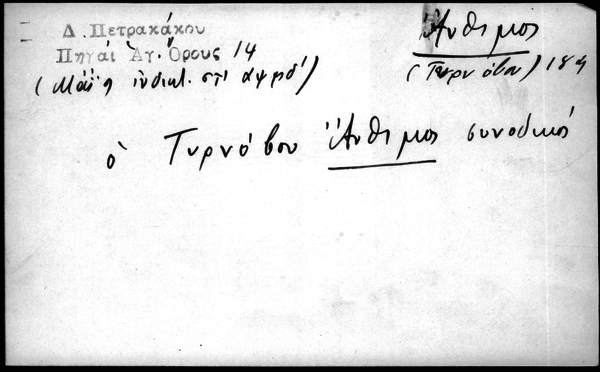 Δ. Πετρακάκου
Πηγαί Ἁγ. Ὄρους 14
(Μάϊ η ἰνδικτ. στί αψμδ')
Ἄνθιμος
(Τυρνόβου) 184
ὁ Τυρνόβου Ἄνθιμος συνοδικός